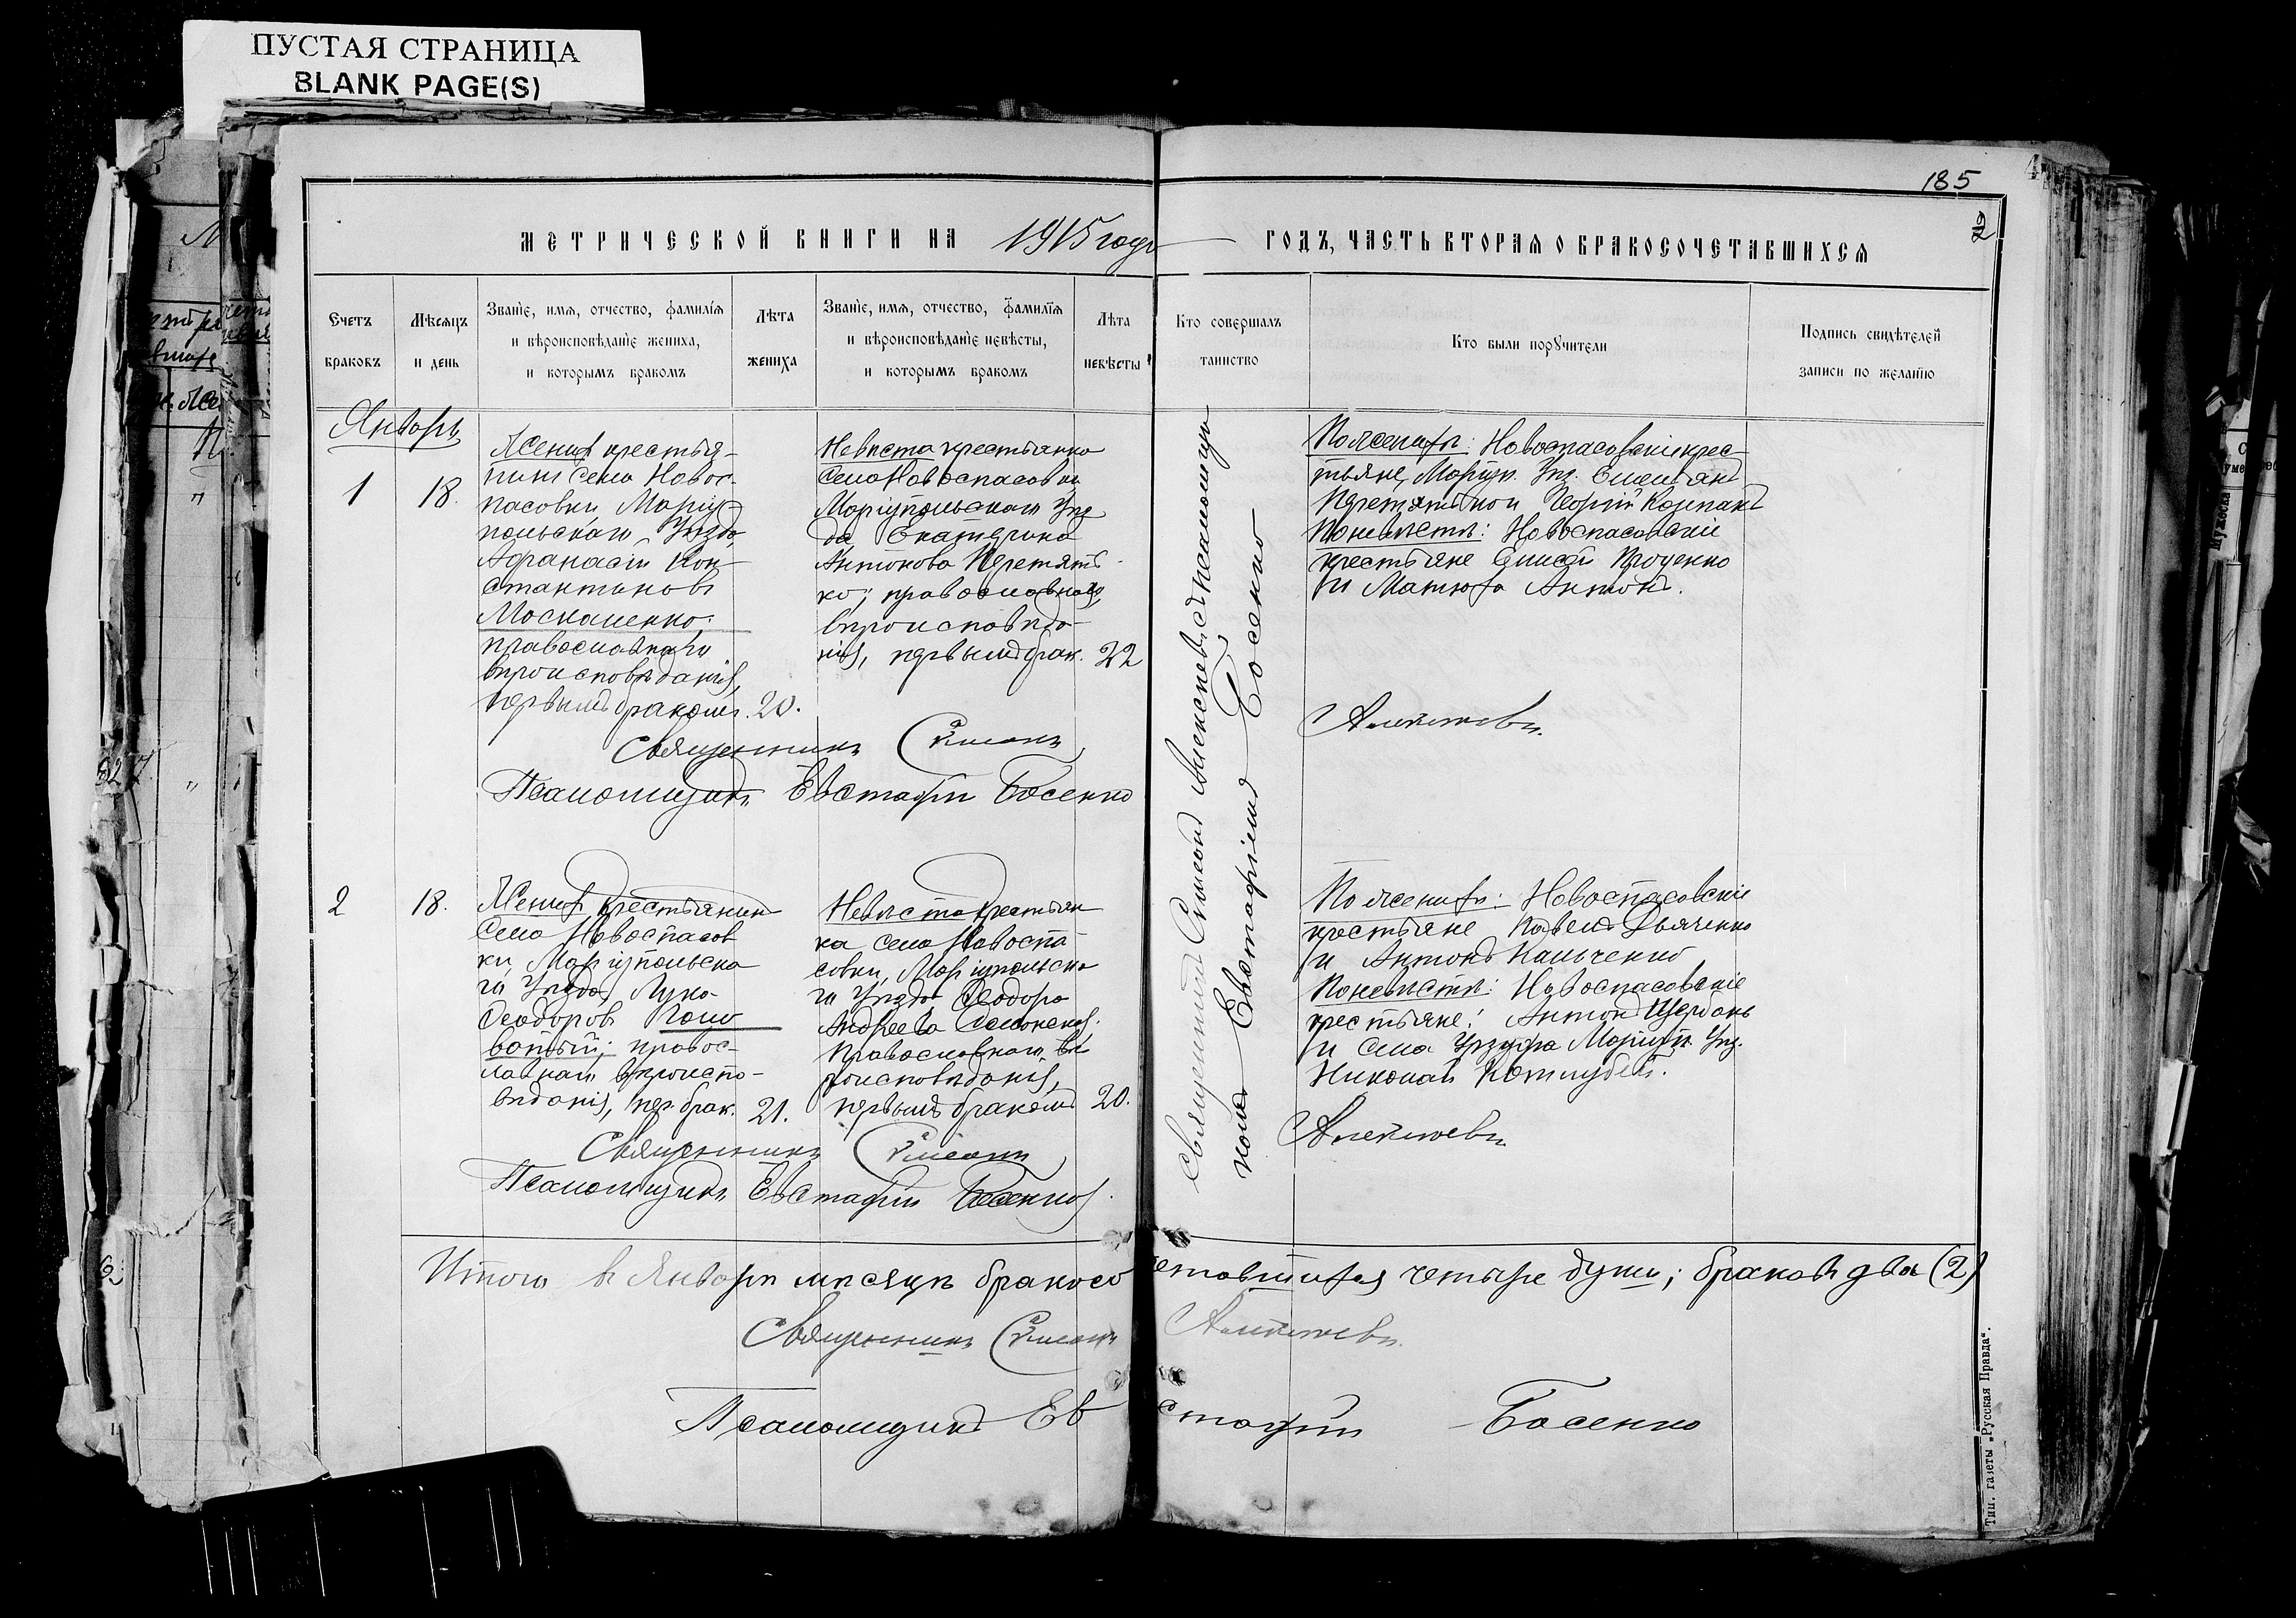 ПУСТАЯ СТРАНИЦА
BLANK PAGE(S)
185
2
МЕТРИЧЕСКОЙ КНИГИ НА 1915 годъ ГОДЪ, ЧАСТЬ ВТОРАЯ О БРАКОСОЧЕТАВШИХСЯ
Счетъ
браковъ
Мѣсяцъ
и день
Званіе, имя, отчество, фамилія
и вѣроисповѣданіе жениха,
и которымъ бракомъ
Лѣта
жениха
Званіе, имя, отчество, фамилія
и вѣроисповѣданіе невѣсты,
и которымъ бракомъ
Лѣта
невѣсты
Кто совершалъ
таинство
Кто были поручители
Подпись свидѣтелей
записи по желанію
Январь
1
18.
Женихъ крестья-
нинъ села Новос-
пасовки, Маріу-
польскаго Уѣзда,
Афанасій Кон-
стантиновъ
Москаленко;
православнаго
вѣроисповѣданія,
первымъ бракомъ.
20.
Невѣста крестьянка
села Новоспасовки
Маріупольскаго Уѣз
да Екатерина
Антонова Перетять
ко; православнаго
вѣроисповѣда-
нія, первымъ брак.
22
Священникъ Симеонъ
Псаломщикъ Евстафій Босенко
Священникъ Симеонъ Алексѣевъ, съ псаломщи-
комъ Евстафіемъ Босенко
По женихѣ: Новоспасовскіе крес-
тьяне, Маріуп. Уѣз. Емельянъ
Перетятько и Георгій
По невѣстѣ: Новоспасовскіе
крестьяне Елисей Проценко
и Матюха Антонъ.
Алексѣевъ.
2
18.
Женихъ крестьянинъ
села Новоспасов
ки, Маріупольска
го Уѣзда, Лука
Феодоровъ Коно
ватый; правос-
лавнаго вѣроиспо-
вѣданія, пер. брак.
21.
Невѣста крестьян
ка села Новоспа
совки, Маріупольска
го Уѣзда Феодора
Андреева
православнаго вѣ
роисповѣданія,
первымъ бракомъ
20.
Священникъ Симеонъ
Псаломщикъ Евстафій Босенко
По женихѣ: Новоспасовскіе
крестьяне Павелъ Дьяченко
и Антонъ Кальченко
По невѣстѣ: Новоспасовскіе
крестьяне: Антонъ Щербань
и села Урзуфа Маріуп. Уѣз.
Николай Кочлубей.
Алексѣевъ
Итого въ Январѣ мѣсяцѣ бракосочетавшихся четыре души; браковъ два (2)
Священникъ Симеонъ Алексѣевъ.
Псаломщикъ Евстафій Босенко
Тип. газеты „Русская Правда“.